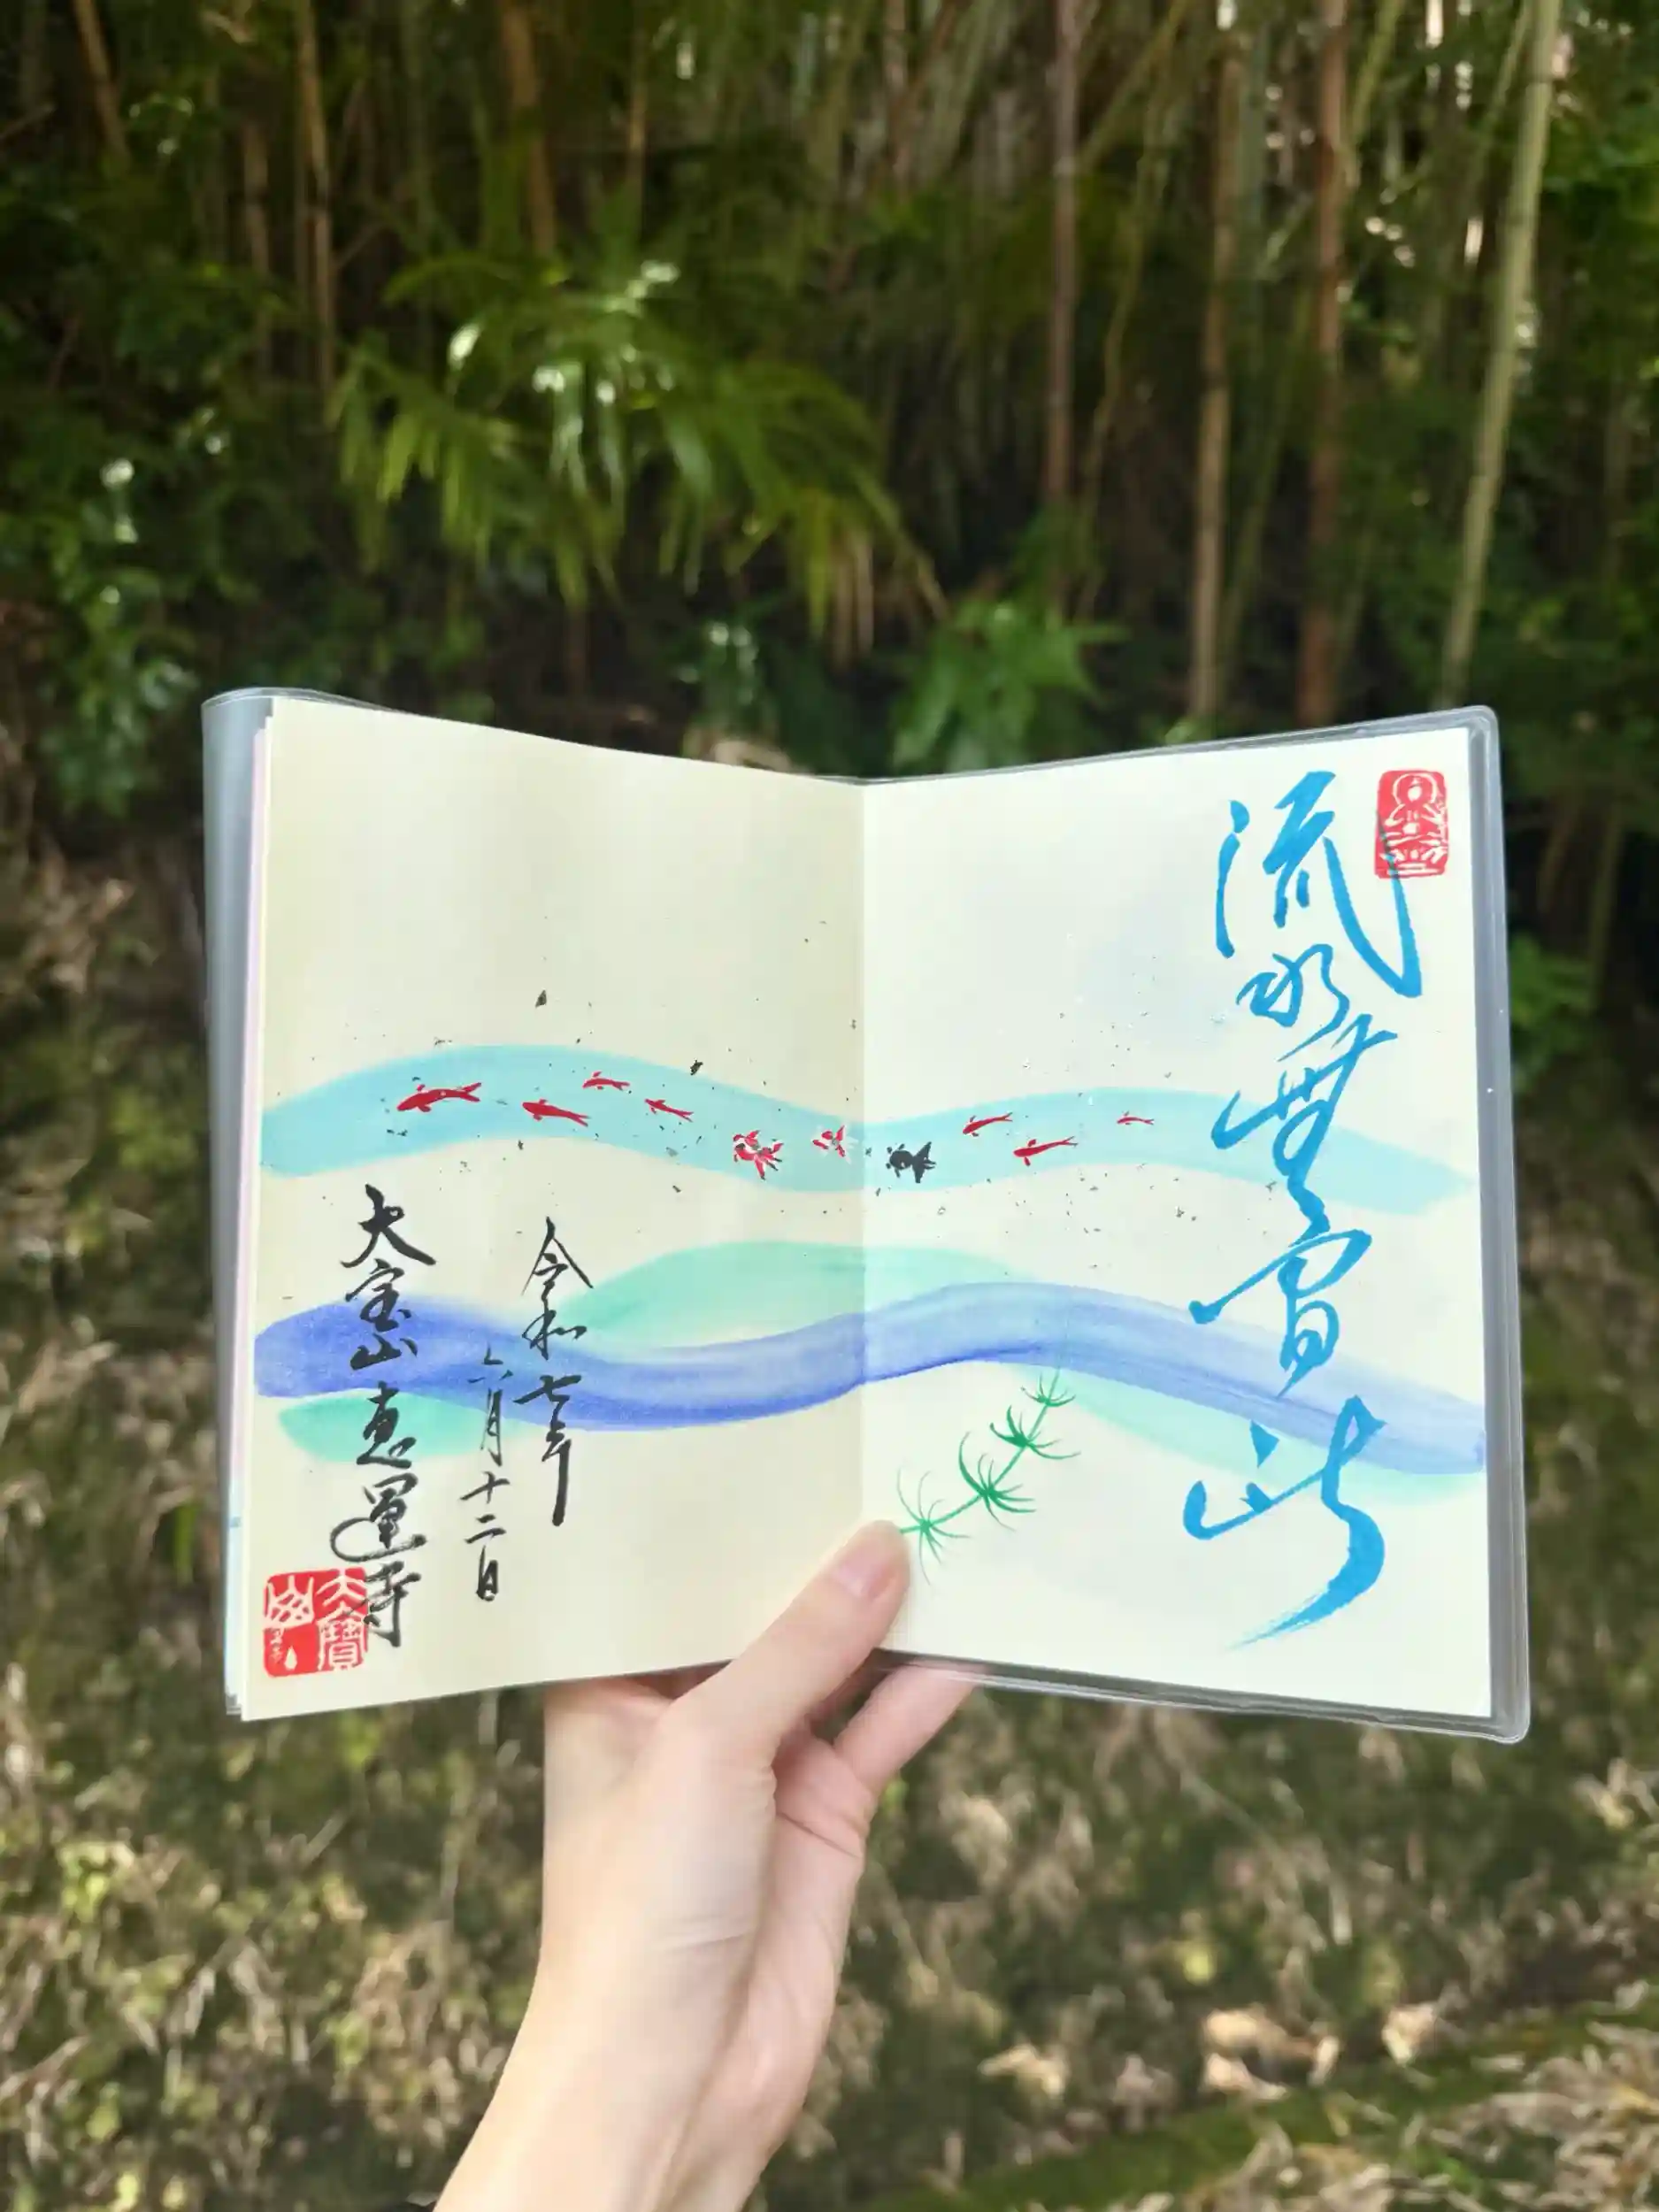 流水無間断
令和七年
六月十二日
大宝山恵運寺
大寶